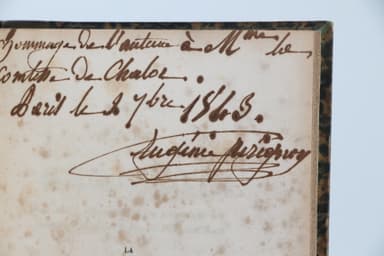 Hommage de l'auteur à Mme la
comtesse de
Paris le 2 7bre 1843.
Eugénie
LA